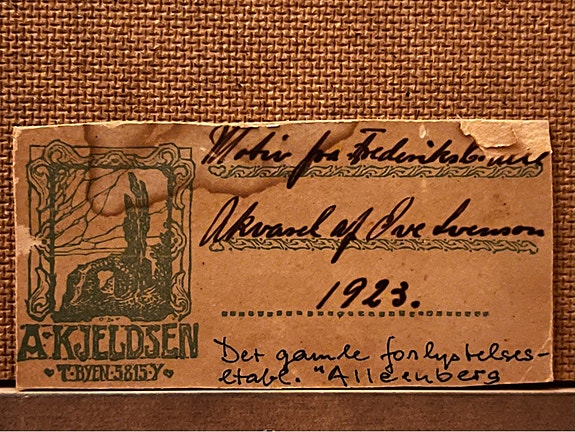 Motiv fra Frederiksberg
Akvarel af Ove Svenson
1923.
A·KJELDSEN
T·BYEN·5815·Y
Det gamle forlystelses-
etabl. "Alleenberg